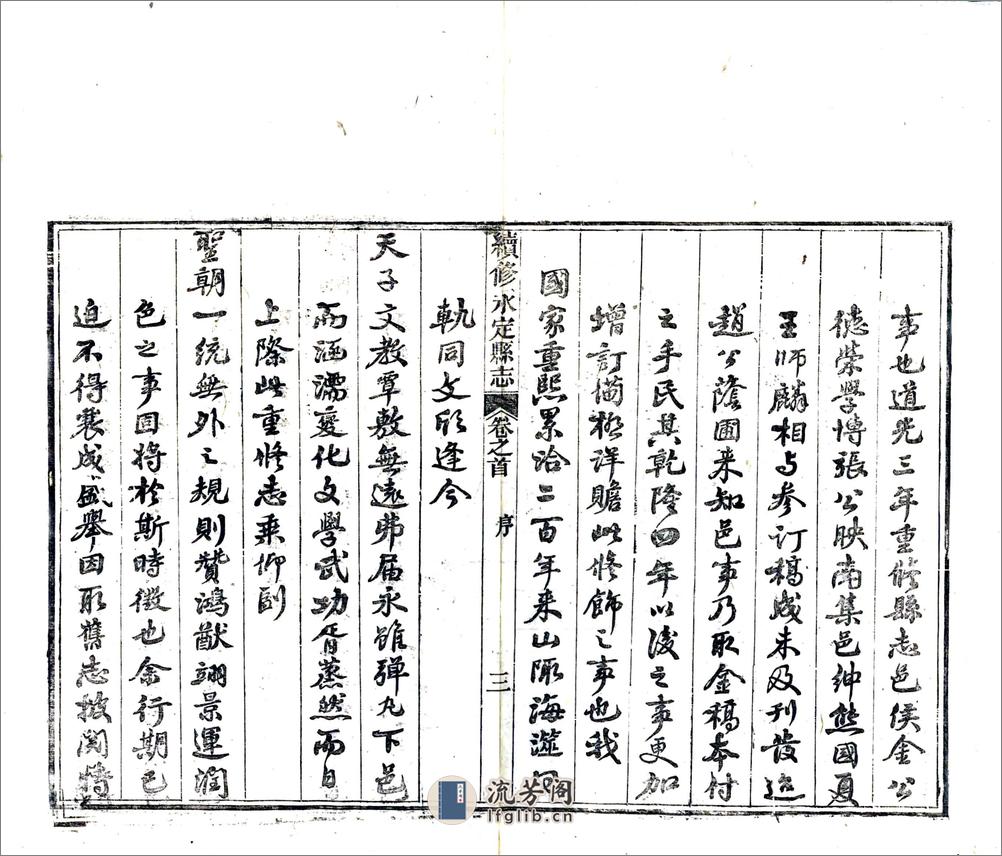 事也道光三年重修縣志邑侯金公
德榮學博張公映南集邑紳熊國夏
王師麟相与參订稿成未及刊發迨
趙公蔭圃来知邑事乃取金稿本付
之手民其乾隆四年以後之事更加
增訂備極详贍此修飾之事也我
國家重熙累洽二百年来山陬海澨同
軌同文欣逢今
天子文教覃敷無遠弗届永雖彈丸下邑
而涵濡變化文學武功胥蒸然而日
上際此重修志乘仰副
聖朝一統無外之規則贊鴻猷翊景運润
色之事固将於斯時徵也余行期已
迫不得襄成盛舉因取舊志披閱
續修永定縣志
卷之首
序
三
流芳阁
lfglib.cn